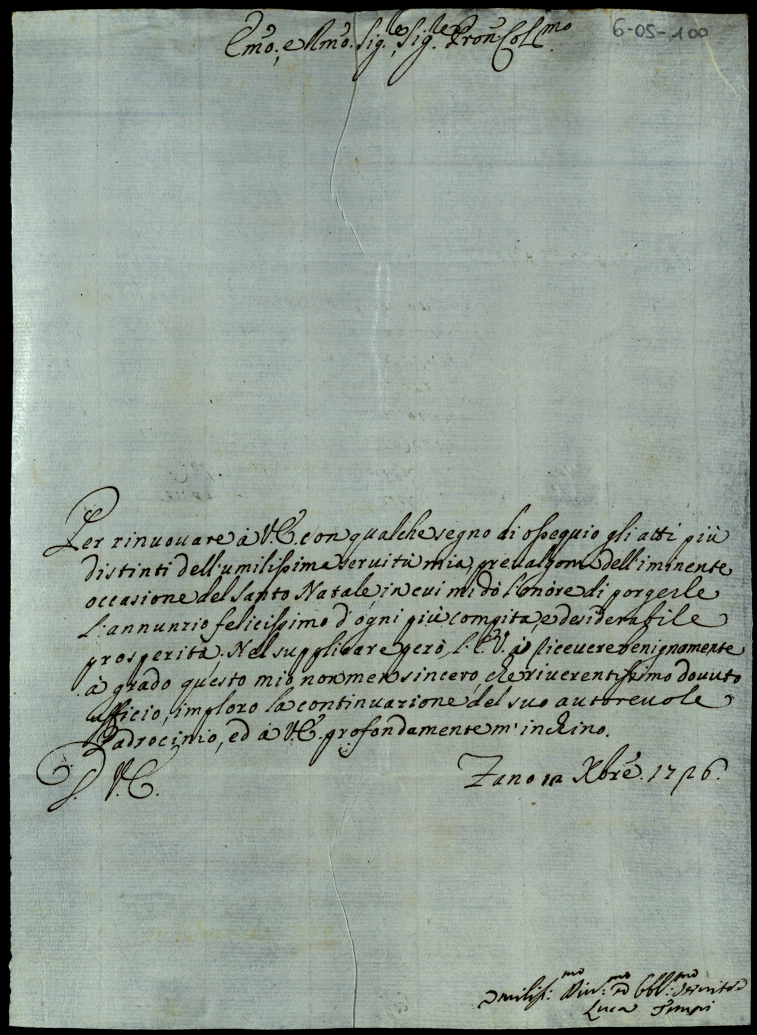 6-05-100
Emo, e Rmo. Sig.re, Sig.re Pron Colmo
Per rinuouare à V.E. con qualche segno di ossequio gli atti più
distinti dell'umilissima seruitù mia, prevalgomi dell'iminente
occasione del Santo Natale in cui mi dò l'onore di porgerle
l'annunzio felicissimo d'ogni più compita, e desiderabile
prosperità. Nel supplicare però l'E.V. à riceuere benignamente
à grado questo mio non men sincero, che riuerentissimo douuto
ufficio, imploro la continuazione del suo autoreuole
Padrocinio, ed à V.E. profondamente m'inchino.
Di V.E.
Fano Xbre. 1726.
Umiliss.mo Diu.mo ed Obbl.mo Seruitore
Luca